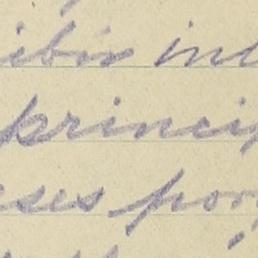 ibir ind
princip
ses por